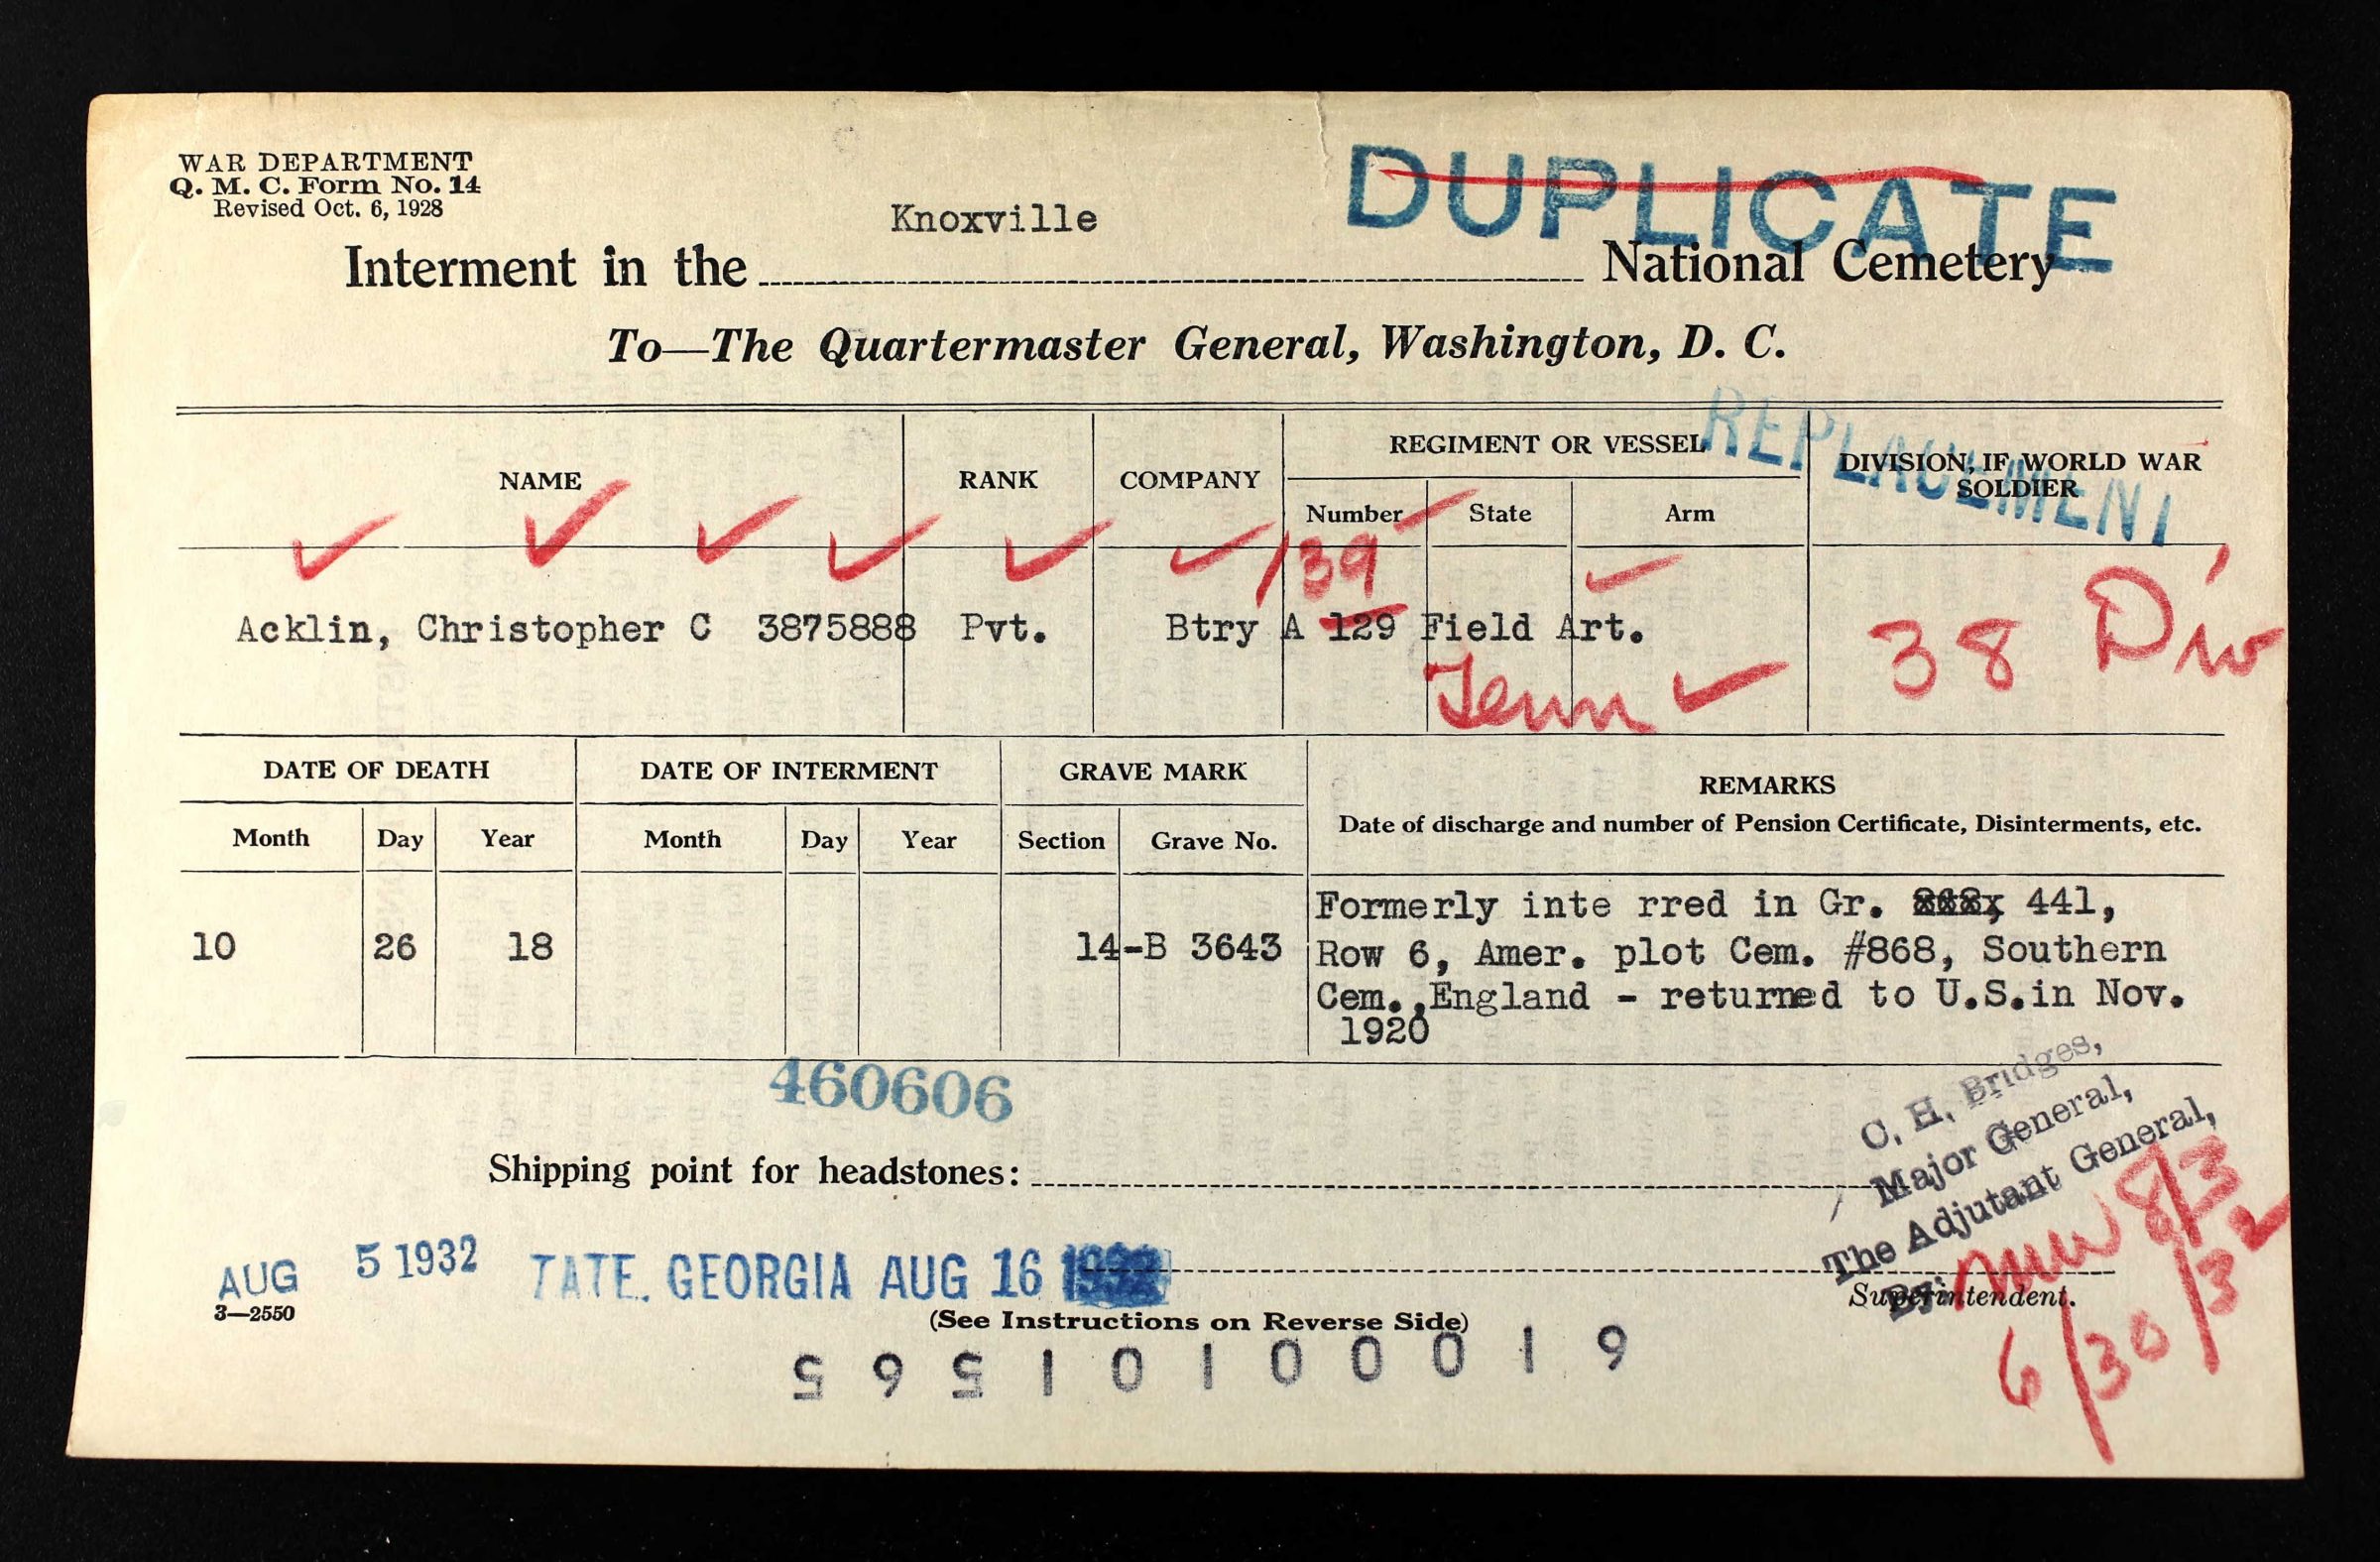 WAR DEPARTMENT
Q. M. C. Form No. 14
Revised Oct. 6, 1928
DUPLICATE
Knoxville
Interment in the National Cemetery
To—The Quartermaster General, Washington, D. C.
REPLACEMENT
NAME RANK COMPANY REGIMENT OR VESSEL DIVISION, IF WORLD WAR SOLDIER
Number State Arm
139
Acklin, Christopher C 3875888 Pvt. Btry A 129 Field Art. 38 Div
Tenn
DATE OF DEATH DATE OF INTERMENT GRAVE MARK REMARKS
Date of discharge and number of Pension Certificate, Disinterments, etc.
Month Day Year Month Day Year Section Grave No.
10 26 18 14-B 3643
Formerly inte rred in Gr. 868, 441,
Row 6, Amer. plot Cem. #868, Southern
Cem.,England - returned to U.S.in Nov.
1920
460606
C. H. Bridges,
Major General,
The Adjutant General,
By:
Shipping point for headstones:
8/3/32
AUG 5 1932 TATE. GEORGIA AUG 16 1932
Superintendent.
3—2550
(See Instructions on Reverse Side)
6/30
5 6 5 1 0 1 0 0 0 1 9